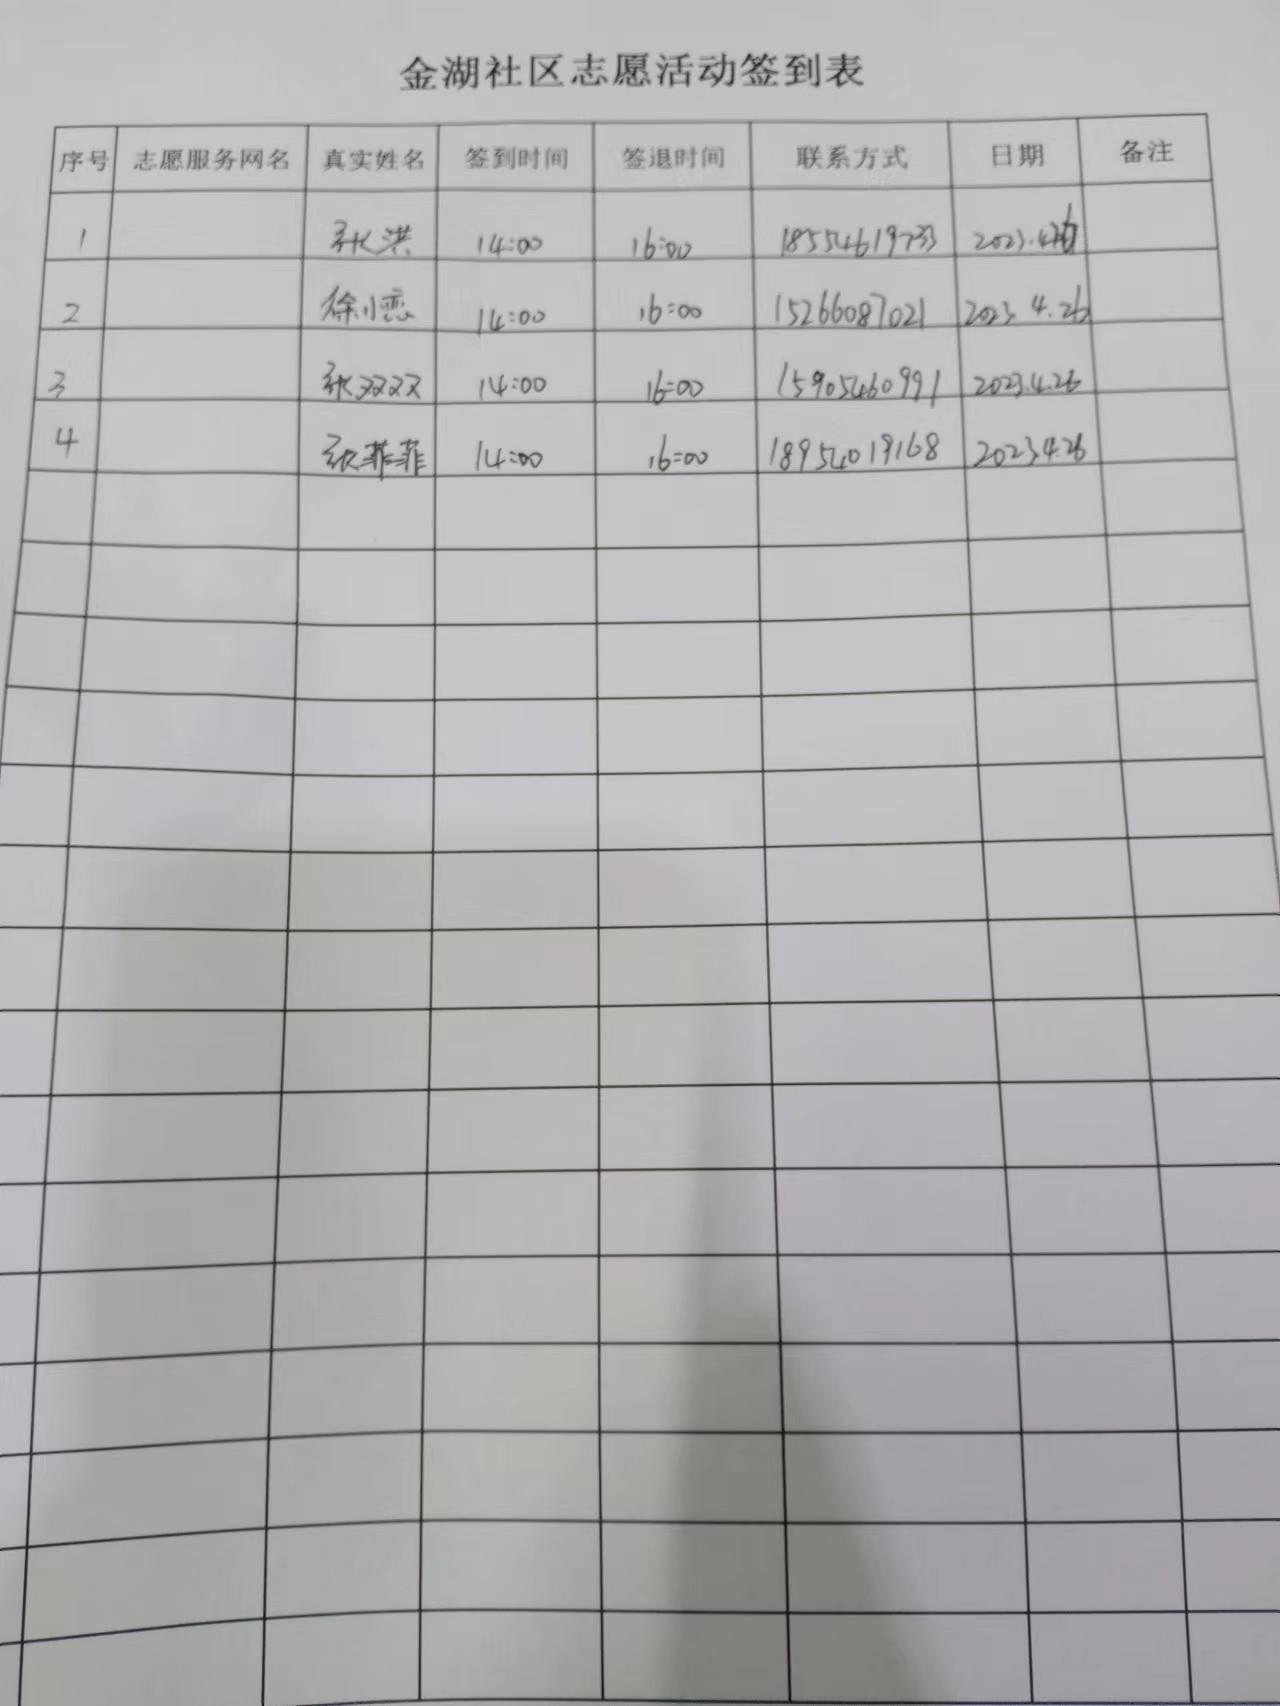 金湖社区志愿活动签到表
序号 志愿服务网名 真实姓名 签到时间 签退时间 联系方式 日期 备注
1 张洪 14:00 16:00 18554619733 2023.4.26
2 徐小恋 14:00 16:00 15266087021 2023.4.26
3 张双双 14:00 16:00 15905460991 2023.4.26
4 张菲菲 14:00 16:00 18954019168 2023.4.26